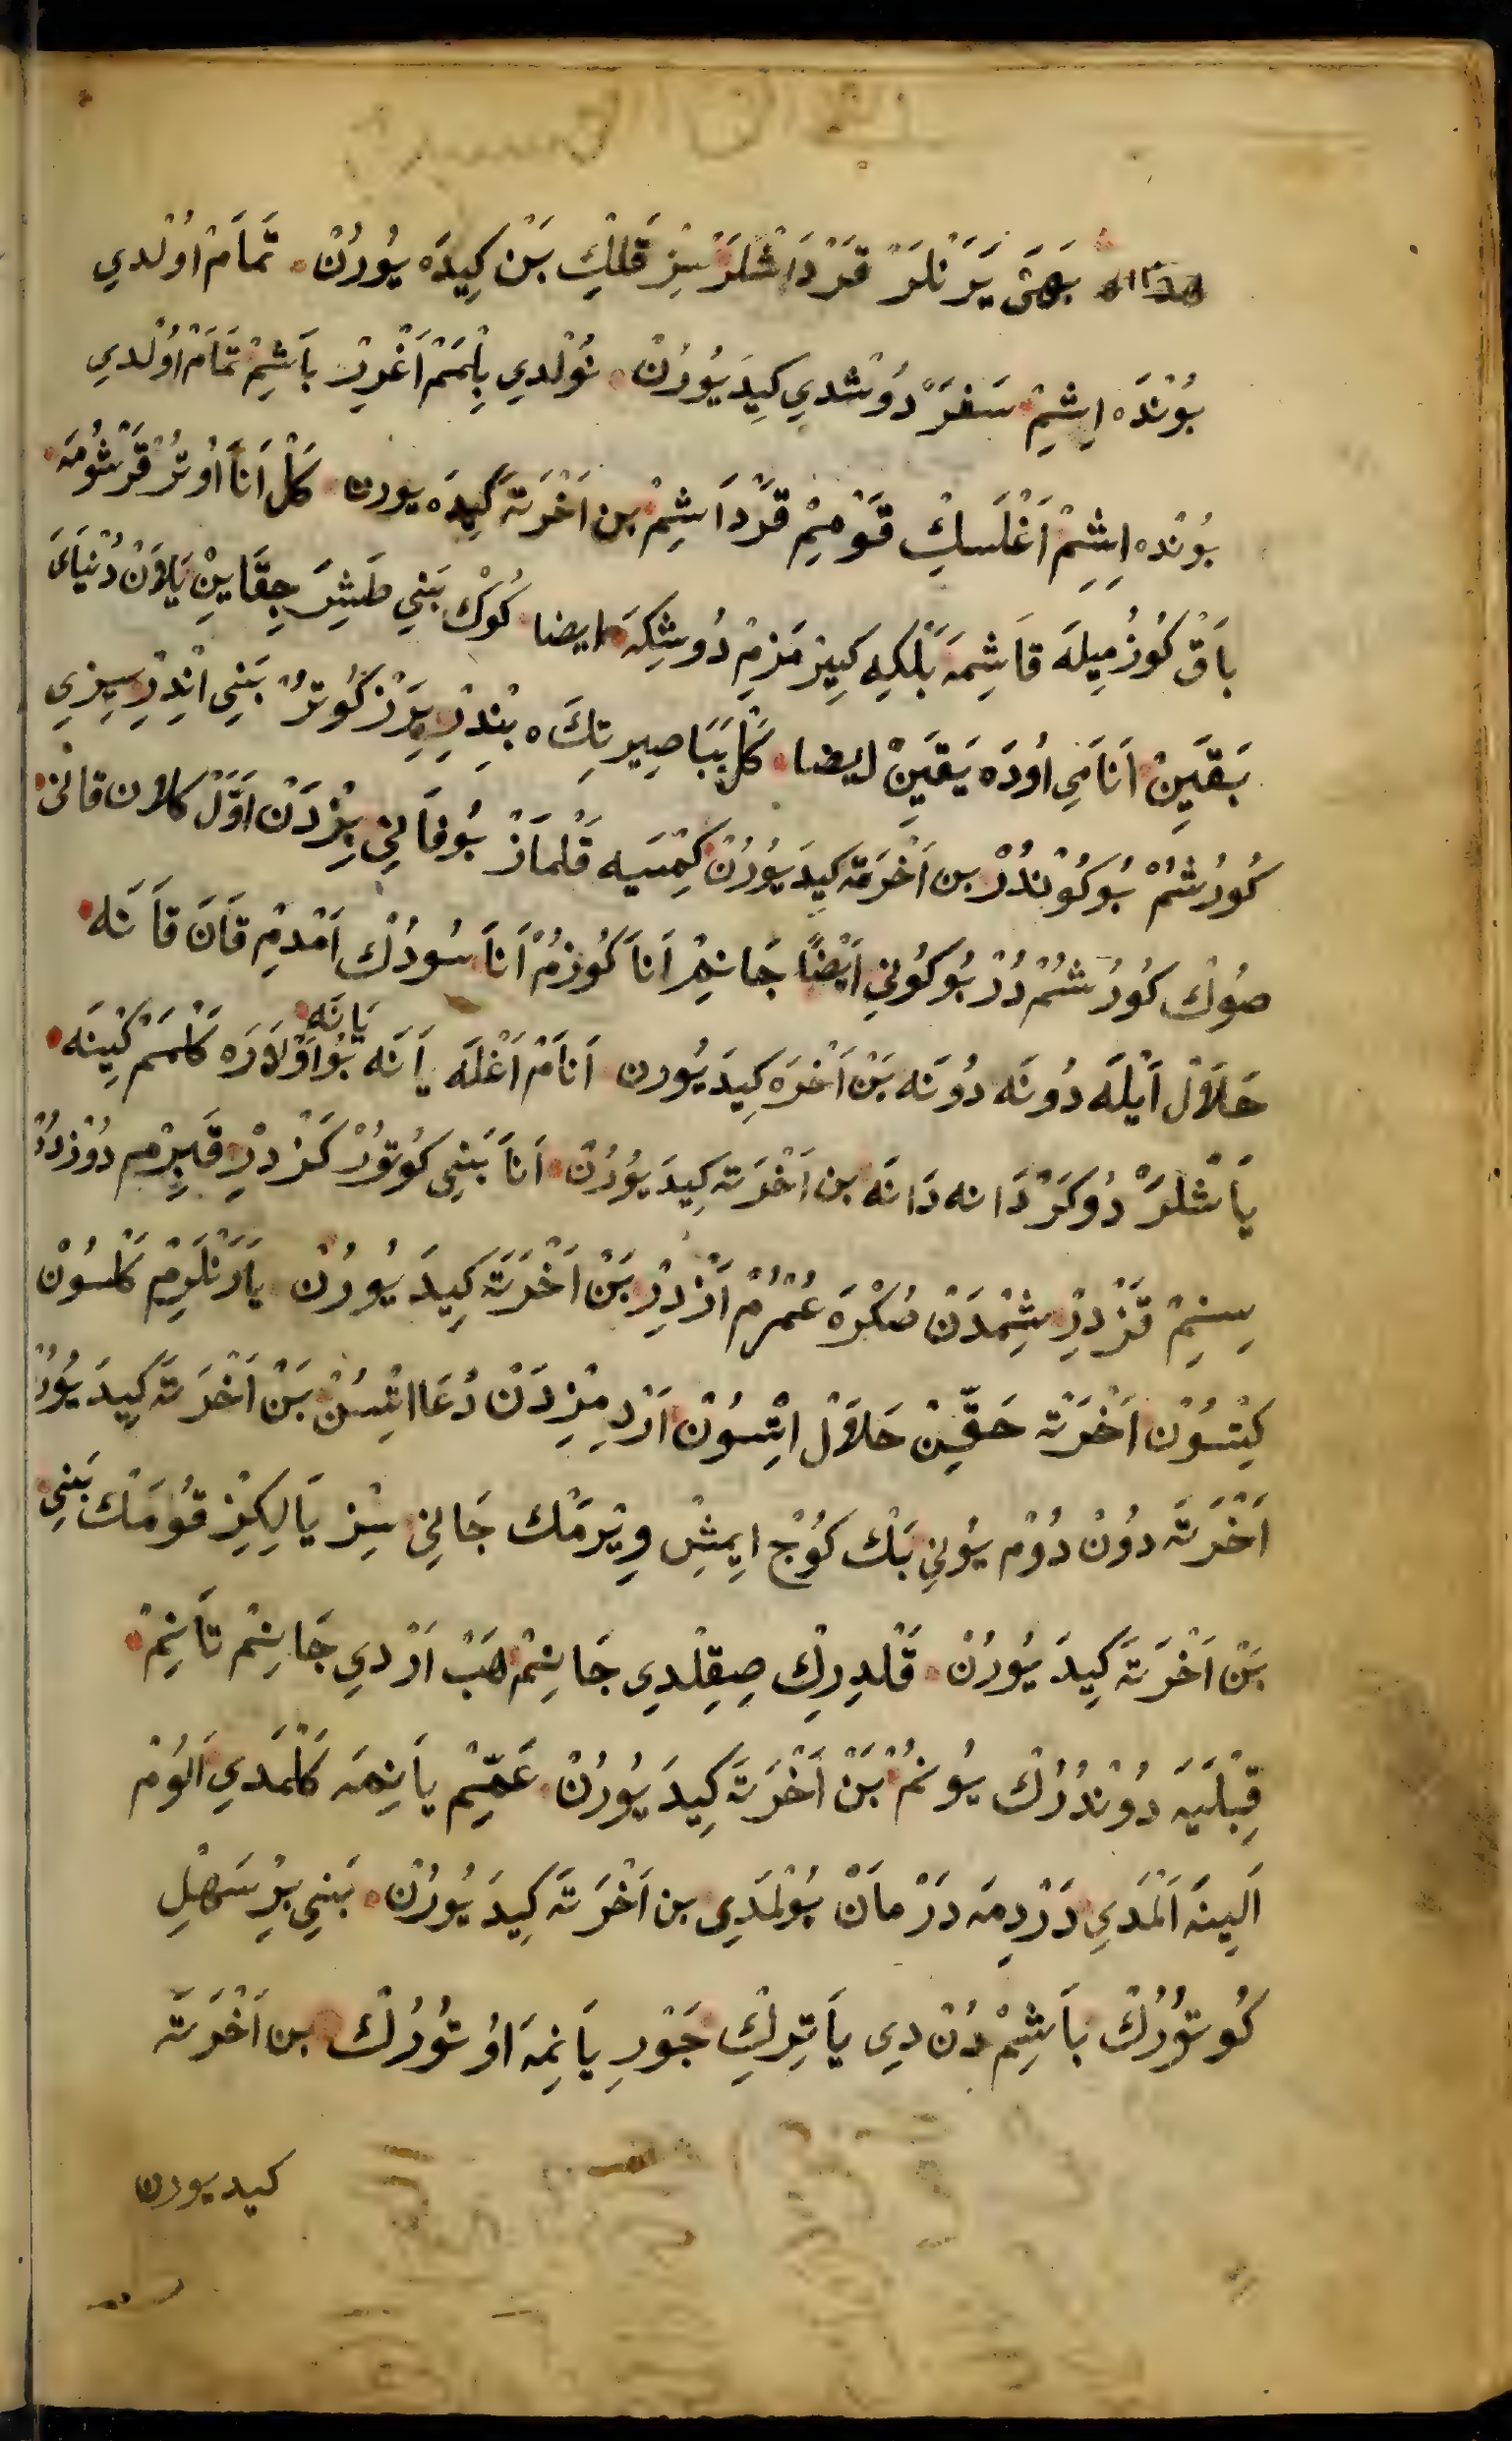 بَهَىْ يَرَنْلَرْ قَرْدَاشْلَرْ سِزْ قَلِكْ بَنْ كِيدَه يُورُنْ تَمَامْ اُوْلْدِي
بُوْنْدَه اِيشِمْ سَفَرْ دُوشْدِي كِيدَيُورُنْ نُوْلْدِي بِلْمَمْ اَغْرِرْ بَاشِمْ تَمَامْ اُوْلْدِي
بُوْنْدَه اِشِمْ اَغْلَسِكْ قَوْمِمْ قَرْدَاشِمْ بن اَخْرَتَه كِيدَه يورن كَلْ اَنَا اُوتُرْ قَرْشُومَه
بَاقْ كُوزُمِيلَه قَاشِمَه بَلْكِه كِيرْمَزِمْ دُوشِكَه ايضا كُوكْ بَنِي طَشِرَ جِقَايِنْ يَلَانْ دُنْيَايَ
بَقَيِنْ اَنَامِي اُودَه يَقَيِنْ ايضا كَلْ بَبَا صِيرتِكَه بِنْدِرْ يِرْ كُوتُرْ بَنِي اَنْدِرْ سِزِي
كُورُشُمْ بُو كُونْدُرْ بن اَخْرَتَه كِيدَيُورُنْ كِمْسَيه قَلْمَازْ بُو فَانِي بِزْدَنْ اَوَّلْ كلان قانى
صُوكْ كُورُشُمْ دُرْ بُو كُونِي اَيْضًا جَانِمْ اَنَا كُوزُمْ اَنَا سُودُكْ اَمْدِمْ قَانَ قَانَه
حَلَالْ اَيْلَه دُونَه دُونَه بَنْ اَخْرَه كِيدَيُورن اَنَامْ اَغْلَه يَانَه يَانَه بُو اَوْلَارَه كَلْمَمْ كِينَه
يَاشْلَرْ دُوكَرْ دَانه دَانَه بن اَخْرَتَه كِيدَيُورُنْ اَنَا بَنِي كُوتُورْ كَزْدِرْ قَبِرِمِ دُوزْدُرْ
سِنِمْ قَزْدِرْ شِمْدَنْ صُكْرَه عُمْرُمْ اَزْدِرْ بَنْ اَخْرَتَه كِيدَيُورُنْ يَارَنْلَرِمْ كَلْسُونْ
كِتْسُونْ اَخْرَتَه حَقِّينْ حَلَالْ اِتْسُونْ اَرْدِمِزْدَنْ دُعَا اِتْسُنْ بَنْ اَخْرَتَه كِيدَيُورُ
اَخْرَتَه دُونْ دُوْم يُونِي بَكْ كُوجْ اِيمِشْ وِيرْمَكْ جَانِي سِزْ يَالِكِزْ قُومَكْ بَنِي
بَنْ اَخْرَتَه كِيدَيُورُنْ قَلْدِرِكْ صِيقِلْدِي جَانِمْ هَبْ اَرْدِي جَانِمْ تَانِمْ
قِبْلَيَه دُونْدُرُكْ يُونُمْ بَنْ اَخْرَتَه كِيدَيُورُنْ عَمِّمْ يَانِمَه كَلْمَدِي اَلُومْ
اَلِينَه اَلْمَدِي دَرْدِمَه دَرْمَانْ بُولْمَدِي بن اَخْرَتَه كِيدَيُورُنْ بَنِي بِرْ سَهْلِ
كُوتُورُكْ بَاشِمْ دُنْ دِي يَاتِرِكْ جَوْرِ يَانِمَه اُوتُورُكْ بن اَخْرَتَه
كيديورن